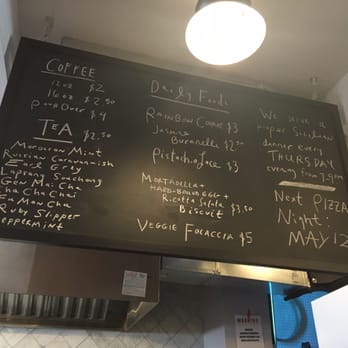 COFFEE
12oz $2
16oz $2.50
Pour Over $4
TEA
$2.50
Moroccan Mint
Russian Caravan
Earl Grey
Lapsang Souchong
Gen Mai Cha
Cha Cha Chai
Ea Mon Cha
Ruby Slipper
Peppermint
Daily Foods
RAINBOW COOKIE $3
Jasmine
Buranelli $2.50
Pistachio $3
MORTADELLA +
HARD-BOILED EGG +
Ricotta Salata
Biscuit $3.50
VEGGIE FOCACCIA $5
We serve a
proper Sicilian
dinner every
THURSDAY
evening from 7-9pm
Next PIZZA
Night!
MAY 12